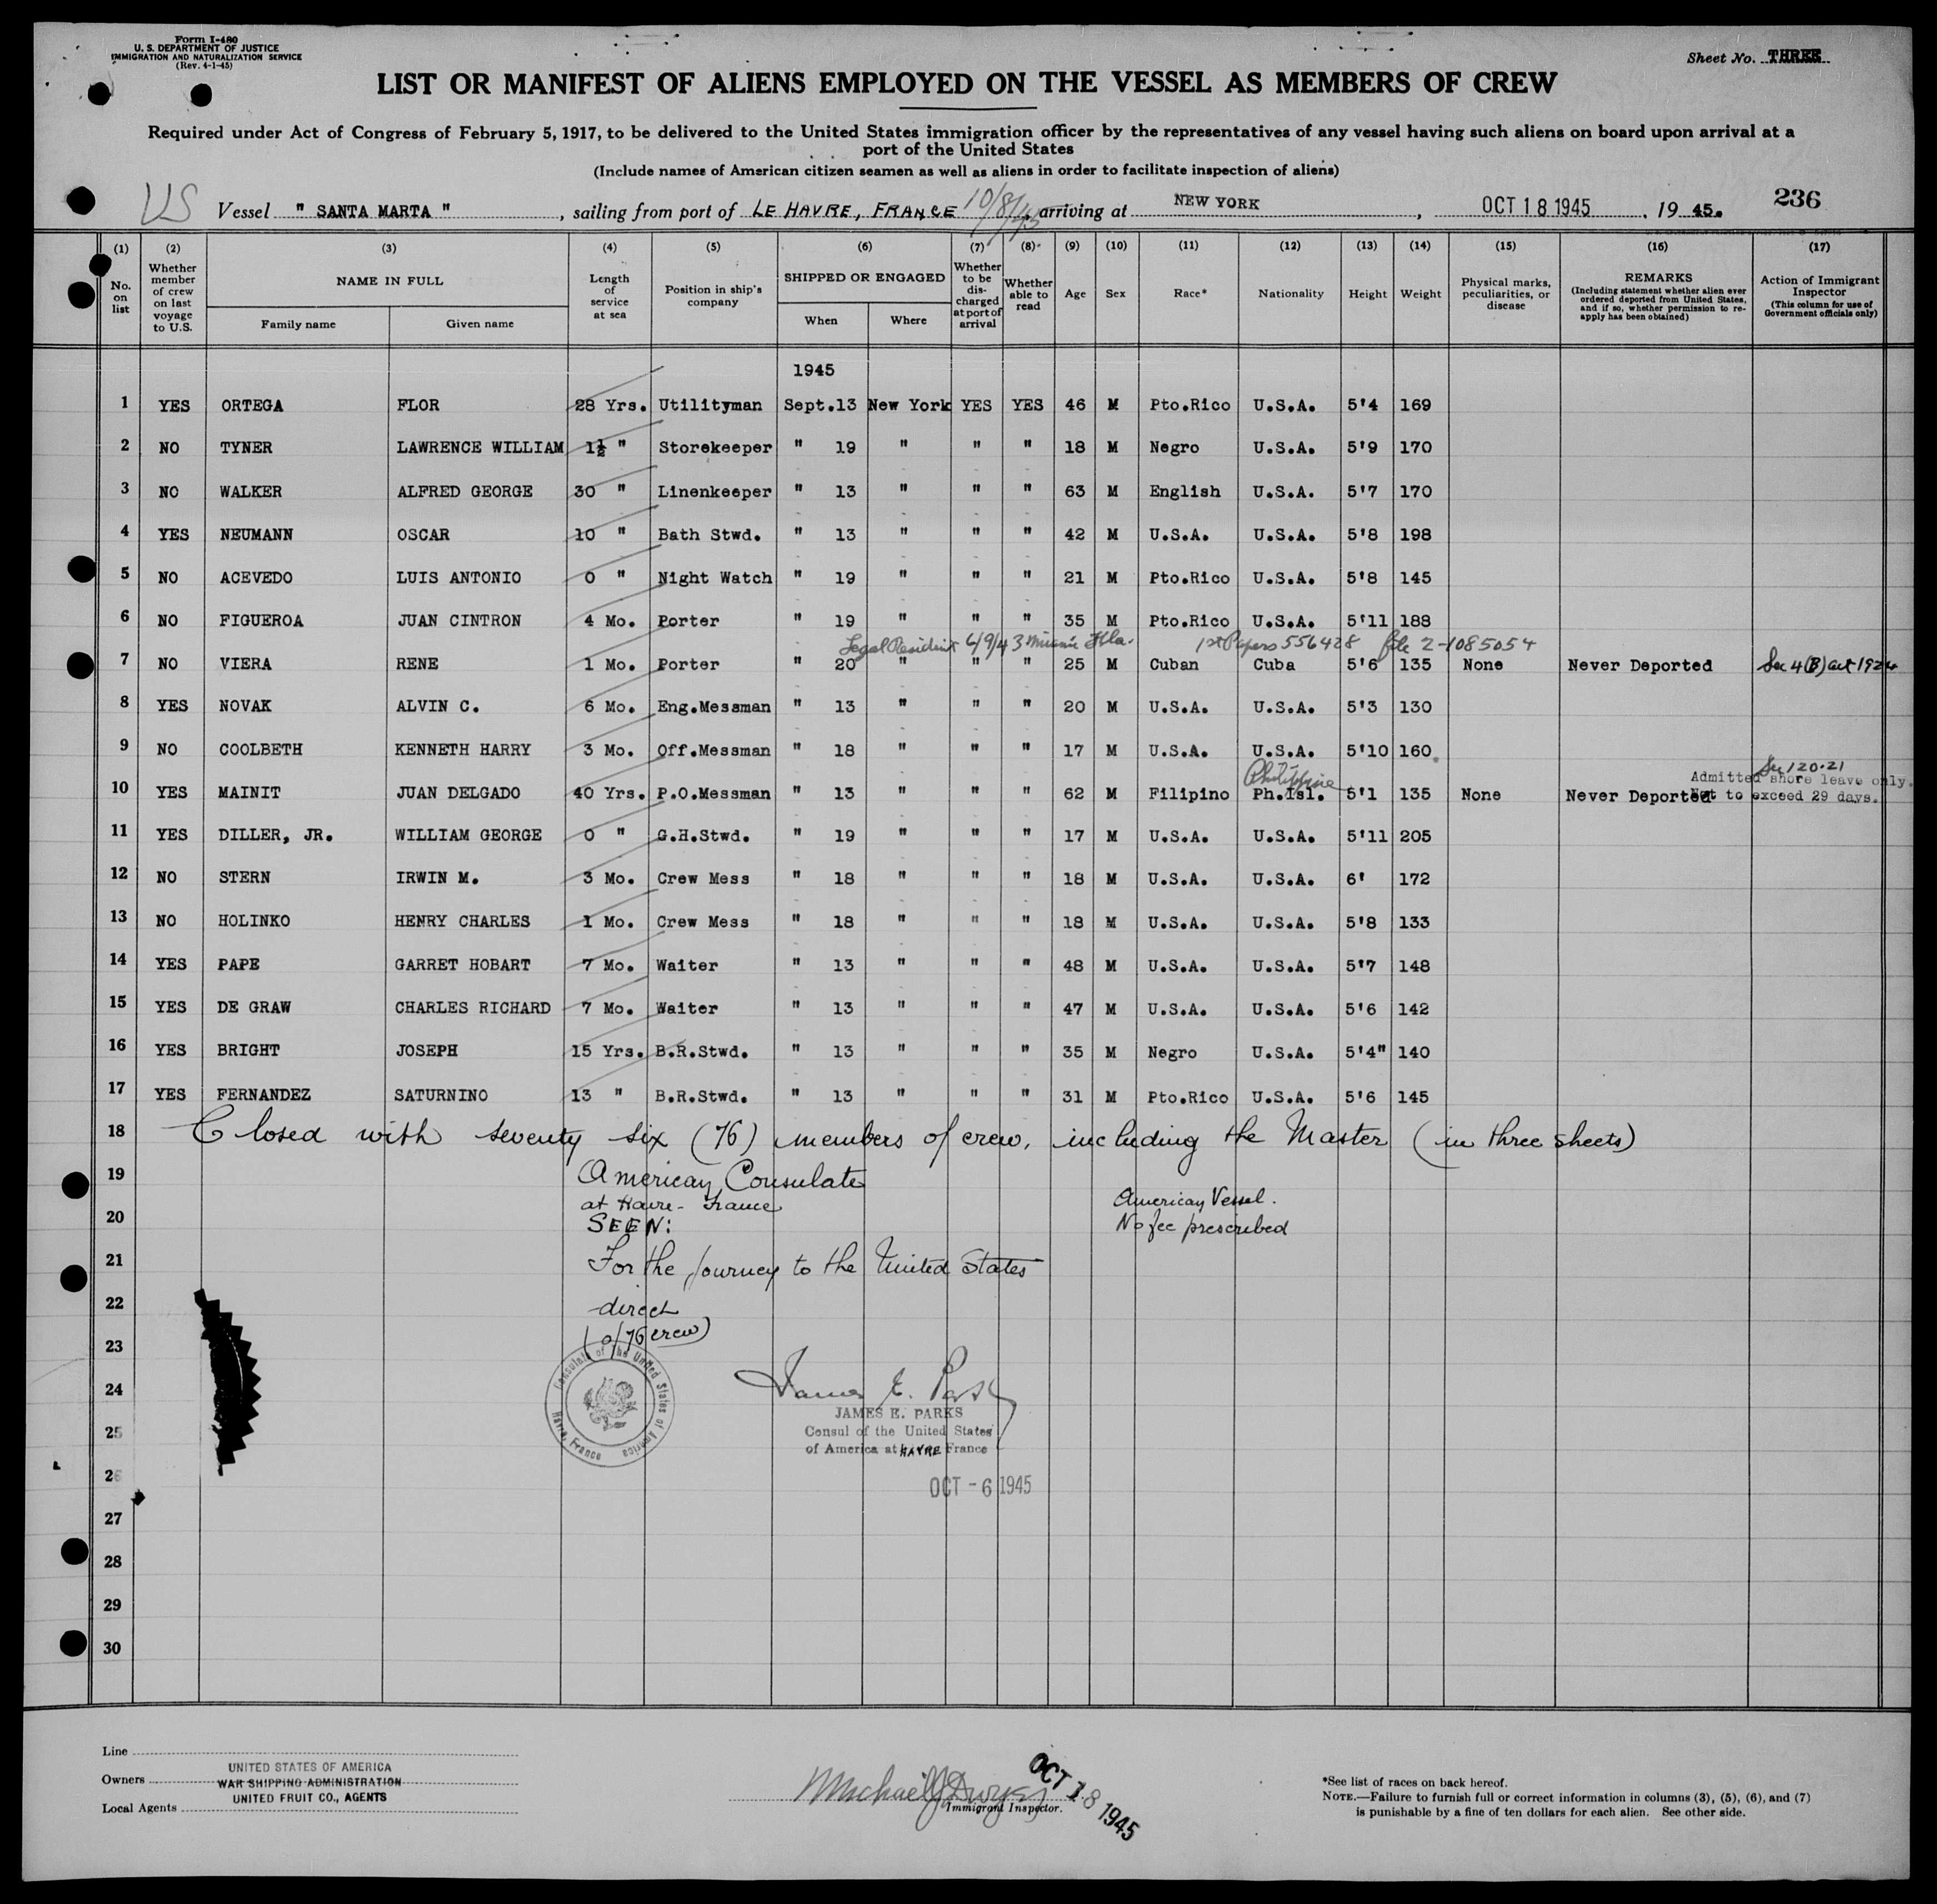 Form I-480
U. S. DEPARTMENT OF JUSTICE
IMMIGRATION AND NATURALIZATION SERVICE
(Rev. 4-1-45)
Sheet No. THREE
LIST OR MANIFEST OF ALIENS EMPLOYED ON THE VESSEL AS MEMBERS OF CREW
Required under Act of Congress of February 5, 1917, to be delivered to the United States immigration officer by the representatives of any vessel having such aliens on board upon arrival at a
port of the United States
(Include names of American citizen seamen as well as aliens in order to facilitate inspection of aliens)
US Vessel " SANTA MARTA ", sailing from port of LE HAVRE, FRANCE 10/8/45, arriving at NEW YORK, OCT 18 1945, 19 45. 236
(1) (2) (3) (4) (5) (6) (7) (8) (9) (10) (11) (12) (13) (14) (15) (16) (17)
No. on list
Whether member of crew on last voyage to U.S.
NAME IN FULL
Family name Given name
Length of service at sea
Position in ship's company
SHIPPED OR ENGAGED
When Where
Whether to be discharged at port of arrival
Whether able to read
Age Sex Race* Nationality Height Weight
Physical marks, peculiarities, or disease
REMARKS
(Including statement whether alien ever ordered deported from United States, and if so, whether permission to re-apply has been obtained)
Action of Immigrant Inspector
(This column for use of Government officials only)
1945
1 YES ORTEGA FLOR 28 Yrs. Utilityman Sept.13 New York YES YES 46 M Pto.Rico U.S.A. 5'4 169
2 NO TYNER LAWRENCE WILLIAM 1½ " Storekeeper " 19 " " " 18 M Negro U.S.A. 5'9 170
3 NO WALKER ALFRED GEORGE 30 " Linenkeeper " 13 " " " 63 M English U.S.A. 5'7 170
4 YES NEUMANN OSCAR 10 " Bath Stwd. " 13 " " " 42 M U.S.A. U.S.A. 5'8 198
5 NO ACEVEDO LUIS ANTONIO 0 " Night Watch " 19 " " " 21 M Pto.Rico U.S.A. 5'8 145
6 NO FIGUEROA JUAN CINTRON 4 Mo. Porter " 19 " " " 35 M Pto.Rico U.S.A. 5'11 188
Legal Resident 6/9/43 Miami Fla. 1st Papers 556428 file 2-1085054
7 NO VIERA RENE 1 Mo. Porter " 20 " " " 25 M Cuban Cuba 5'6 135 None Never Deported Sec 4(B) act 1924
8 YES NOVAK ALVIN C. 6 Mo. Eng.Messman " 13 " " " 20 M U.S.A. U.S.A. 5'3 130
9 NO COOLBETH KENNETH HARRY 3 Mo. Off.Messman " 18 " " " 17 M U.S.A. U.S.A. 5'10 160
Philippine Sec 120.21
Admitted shore leave only.
10 YES MAINIT JUAN DELGADO 40 Yrs. P.O.Messman " 13 " " " 62 M Filipino Ph.Isl. 5'1 135 None Never Deported Not to exceed 29 days.
11 YES DILLER, JR. WILLIAM GEORGE 0 " G.H.Stwd. " 19 " " " 17 M U.S.A. U.S.A. 5'11 205
12 NO STERN IRWIN M. 3 Mo. Crew Mess " 18 " " " 18 M U.S.A. U.S.A. 6' 172
13 NO HOLINKO HENRY CHARLES 1 Mo. Crew Mess " 18 " " " 18 M U.S.A. U.S.A. 5'8 133
14 YES PAPE GARRET HOBART 7 Mo. Waiter " 13 " " " 48 M U.S.A. U.S.A. 5'7 148
15 YES DE GRAW CHARLES RICHARD 7 Mo. Waiter " 13 " " " 47 M U.S.A. U.S.A. 5'6 142
16 YES BRIGHT JOSEPH 15 Yrs. B.R.Stwd. " 13 " " " 35 M Negro U.S.A. 5'4" 140
17 YES FERNANDEZ SATURNINO 13 " B.R.Stwd. " 13 " " " 31 M Pto.Rico U.S.A. 5'6 145
18 Closed with seventy six (76) members of crew, including the Master (in three sheets)
19 American Consulate
at Havre - France American Vessel.
20 SEEN: No fee prescribed
21 For the journey to the United States
22 direct
23 (of 76 crew)
Consulate of the United States of America
Havre, France
24 James E. Parks
JAMES E. PARKS
25 Consul of the United States
of America at HAVRE France
26
OCT - 6 1945
27
28
29
30
Line
Owners UNITED STATES OF AMERICA
WAR SHIPPING ADMINISTRATION
Local Agents UNITED FRUIT CO., AGENTS
Michael J Dwyer
Immigrant Inspector.
OCT 18 1945
*See list of races on back hereof.
NOTE.—Failure to furnish full or correct information in columns (3), (5), (6), and (7)
is punishable by a fine of ten dollars for each alien. See other side.